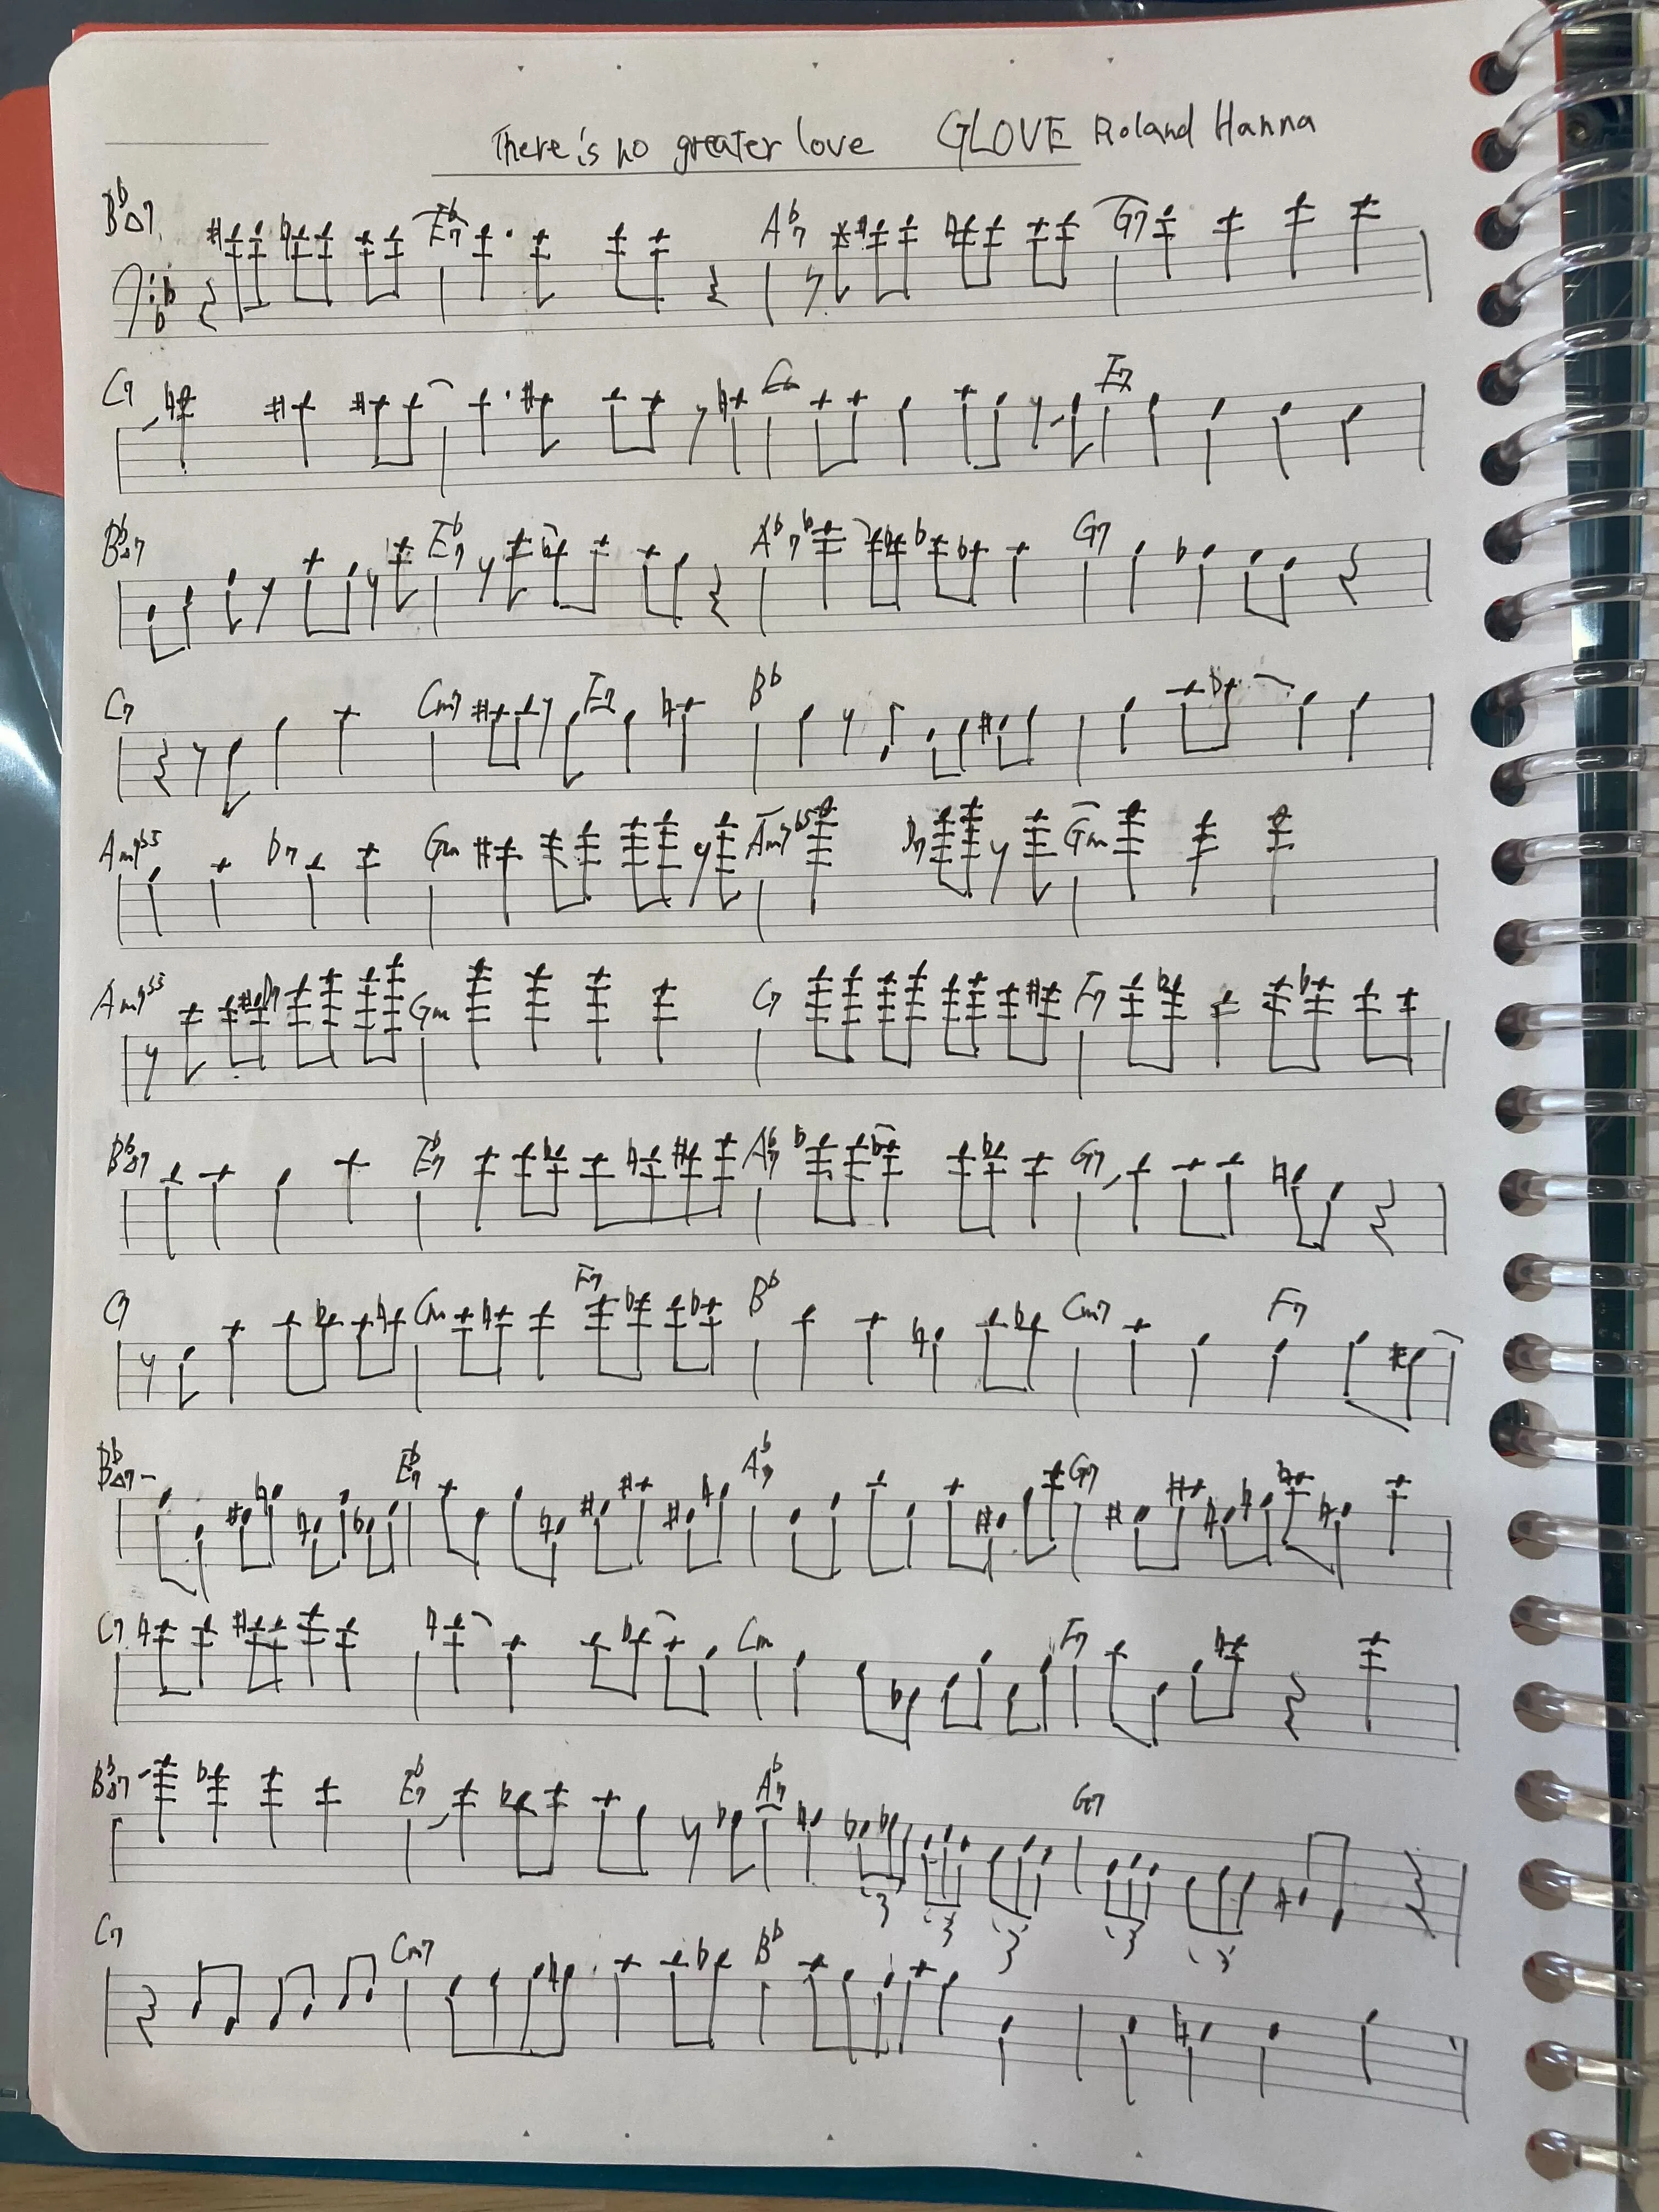 There is no greater love GLOVE Roland Hanna
B♭△7 E♭7 A♭7 G7
C7 F7
B♭△7 E♭7 A♭7 G7
C7 Cm7 F7 B♭
Am7♭5 D7 Gm Am7♭5 D7 Gm
Am7♭5 D7 Gm C7 F7
B♭△7 E♭7 A♭7 G7
C7 Cm F7 B♭ Cm7 F7
B♭△7 E♭7 A♭7 G7
C7 Cm F7
B♭△7 E♭7 A♭7 G7
3 3 3 3 3
C7 Cm7 B♭